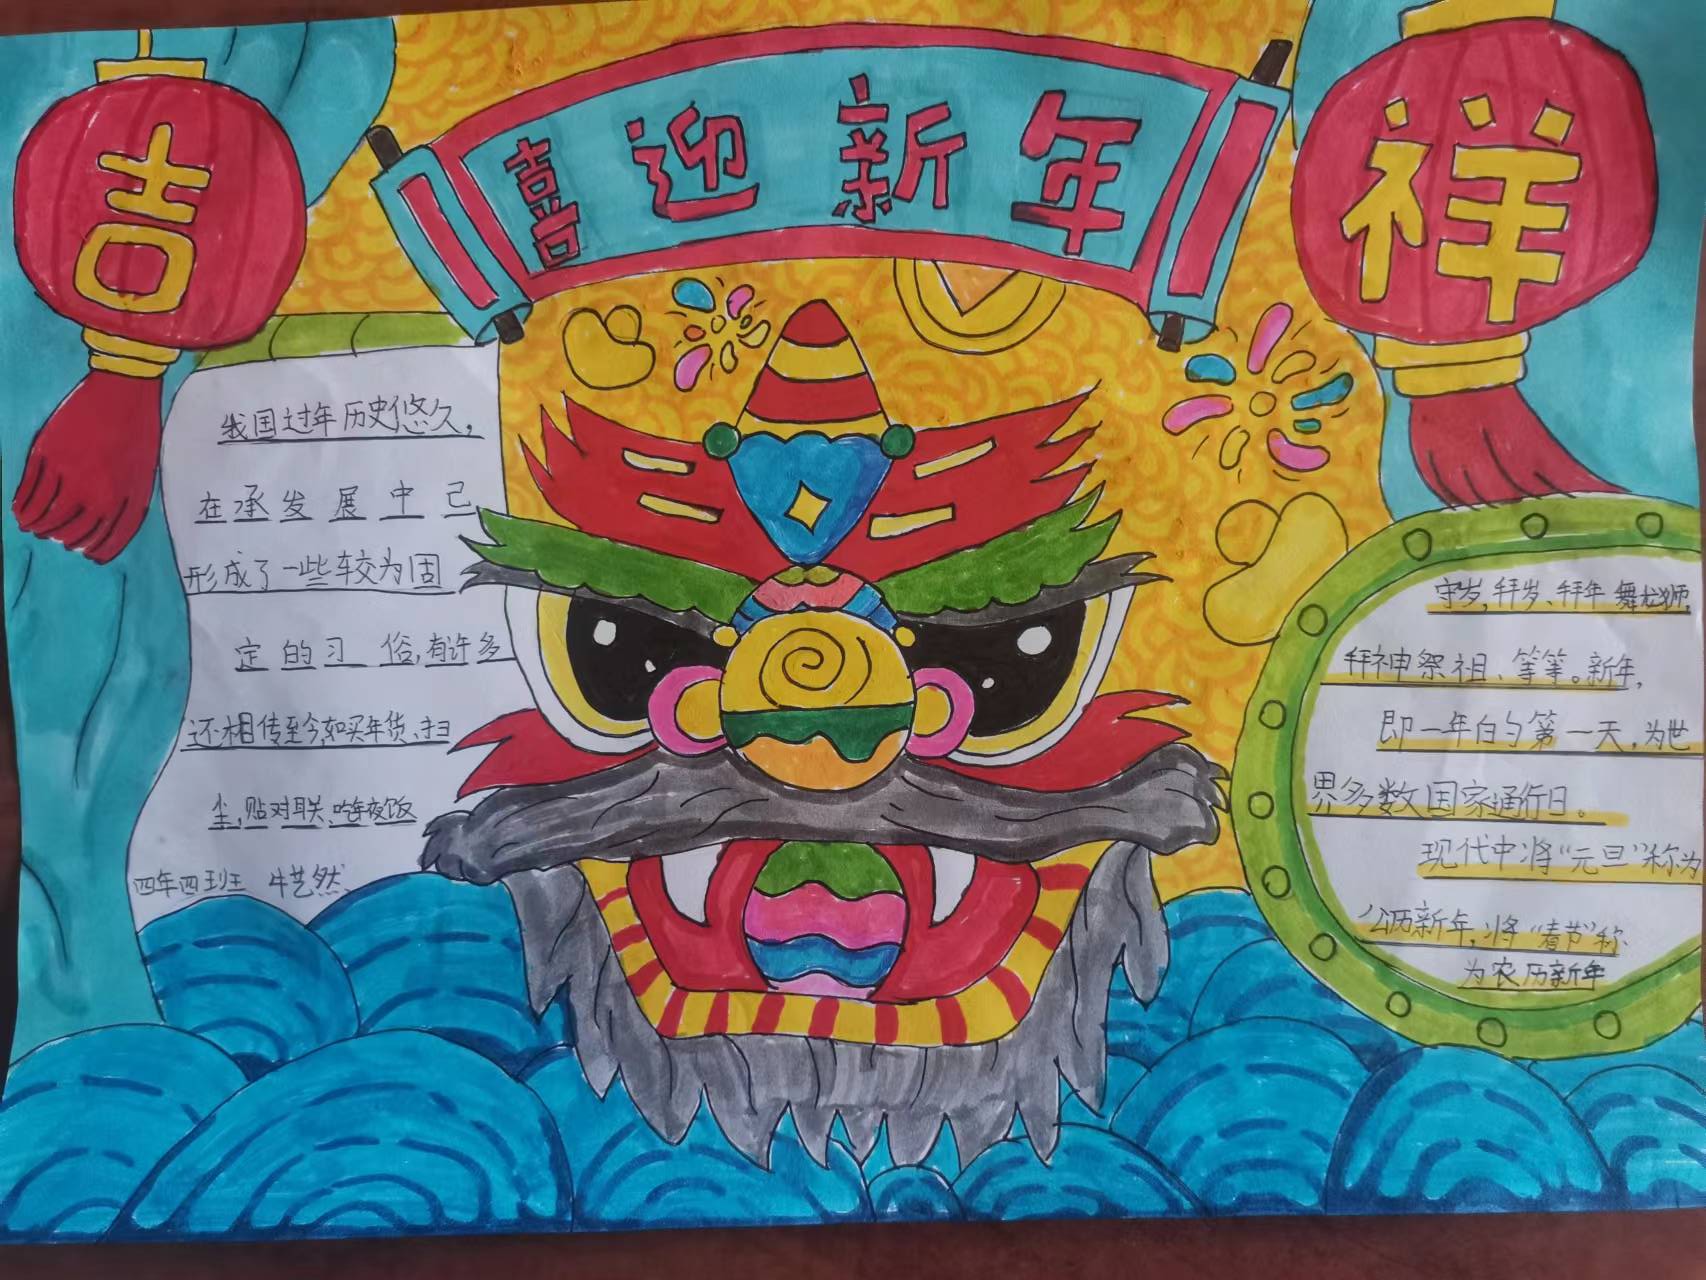 吉
喜迎新年
祥
我国过年历史悠久,
在承发展中已
形成了一些较为固
定的习俗,有许多
还相传至今,如买年货、扫
尘,贴对联、吃年夜饭
四年四班 牛艺然
守岁,拜岁、拜年舞龙狮,
拜神祭祖、等等。新年,
即一年的第一天,为世
界多数国家通行日。
现代中将“元旦”称为
公历新年,将“春节”称
为农历新年